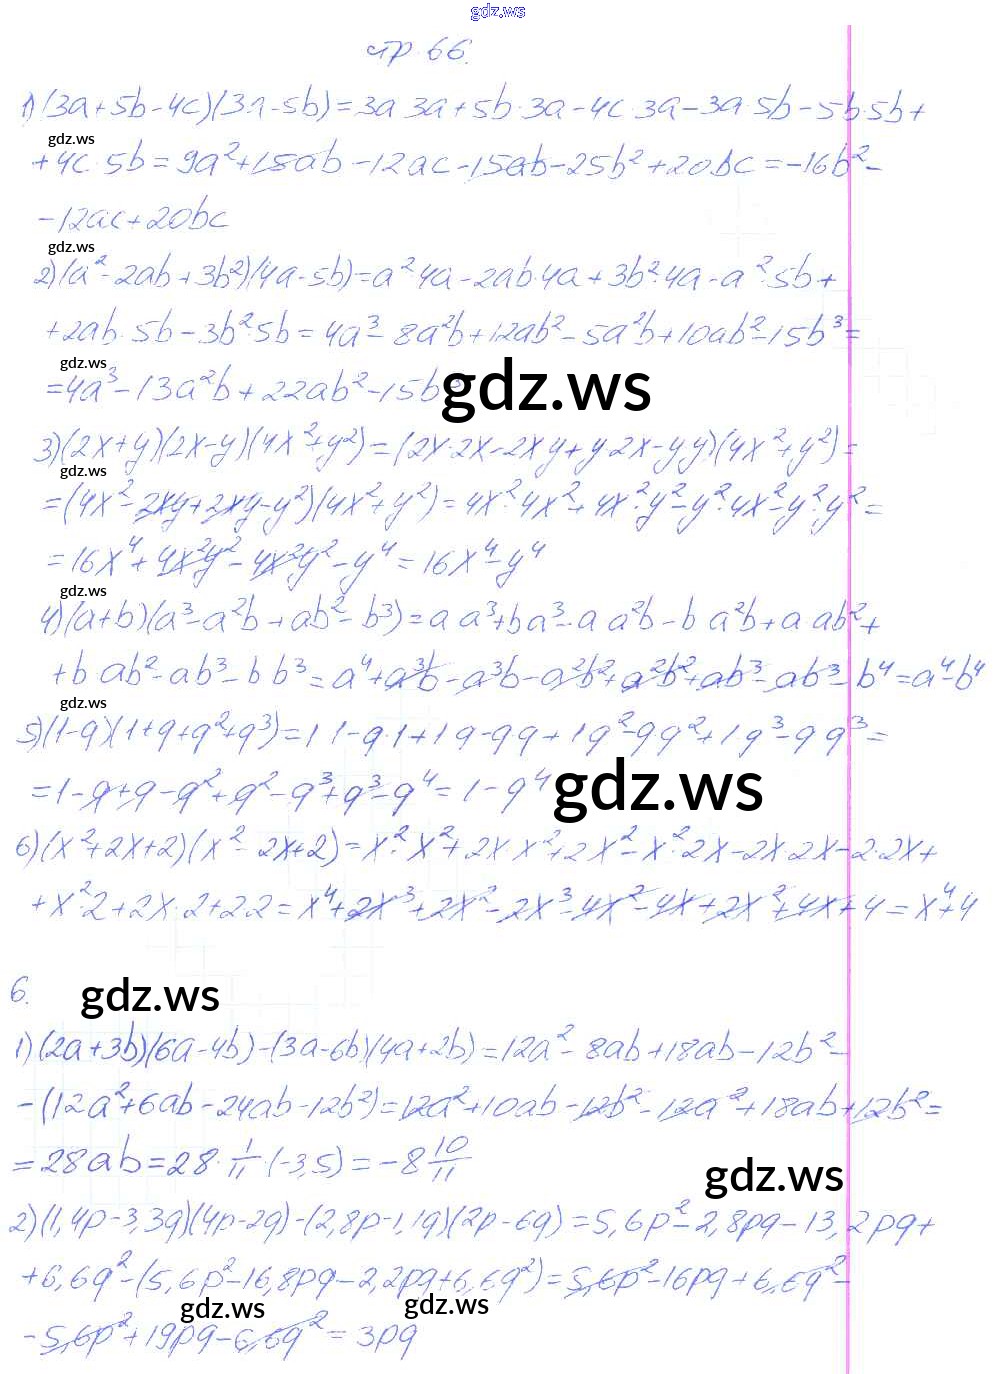 gdz.ws
стр 66.
1) (3a+5b-4c)(3a-5b)=3a 3a+5b·3a-4c·3a-3a·5b-5b·5b+
gdz.ws
+4c·5b=9a²+15ab-12ac-15ab-25b²+20bc=-16b²-
-12ac+20bc
gdz.ws
2) (a²-2ab+3b²)(4a-5b)=a²4a-2ab·4a+3b²·4a-a²·5b+
+2ab·5b-3b²·5b=4a³-8a²b+12ab²-5a²b+10ab²-15b³=
gdz.ws
=4a³-13a²b+22ab²-15b³
gdz.ws
3) (2x+y)(2x-y)(4x²+y²)=(2x·2x-2xy+y·2x-yy)(4x²+y²)=
gdz.ws
=(4x²-2xy+2xy-y²)(4x²+y²)=4x²·4x²+4x²·y²-y²·4x²-y²·y²=
=16x⁴+4x²y²-4x²y²-y⁴=16x⁴-y⁴
gdz.ws
4) (a+b)(a³-a²b+ab²-b³)=a a³+ba³-a a²b-b a²b+a ab²+
+b ab²-ab³-b b³=a⁴+a³b-a³b-a²b²+a²b²+ab³-ab³-b⁴=a⁴-b⁴
gdz.ws
5) (1-q)(1+q+q²+q³)=1 1-q·1+1q-qq+1q²-qq²+1q³-qq³=
=1-q+q-q²+q²-q³+q³-q⁴=1-q⁴
gdz.ws
6) (x²+2x+2)(x²-2x+2)=x²·x²+2x·x²+2x²-x²·2x-2x·2x-2·2x+
+x²·2+2x·2+2·2=x⁴+2x³+2x²-2x³-4x²-4x+2x²+4x+4=x⁴+4
6.
gdz.ws
1) (2a+3b)(6a-4b)-(3a-6b)(4a+2b)=12a²-8ab+18ab-12b²-
-(12a²+6ab-24ab-12b²)=12a²+10ab-12b²-12a²+18ab+12b²=
=28ab=28·1/11·(-3,5)=-8 10/11
gdz.ws
2) (1,4p-3,3q)(4p-2q)-(2,8p-1,1q)(2p-6q)=5,6p²-2,8pq-13,2pq+
+6,6q²-(5,6p²-16,8pq-2,2pq+6,6q²)=5,6p²-16pq+6,6q²-
gdz.ws
gdz.ws
-5,6p²+19pq-6,6q²=3pq